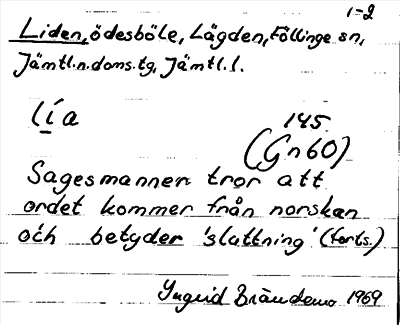 1-2
Liden, ödesböle, Lägden, Föllinge sn,
Jämtl.n.doms.tg, Jämtl.l.
lía 145
(Gn60)
Sagesmannen tror att
ordet kommer från norskan
och betyder 'sluttning' (forts.)
Ingrid Brändemo 1969